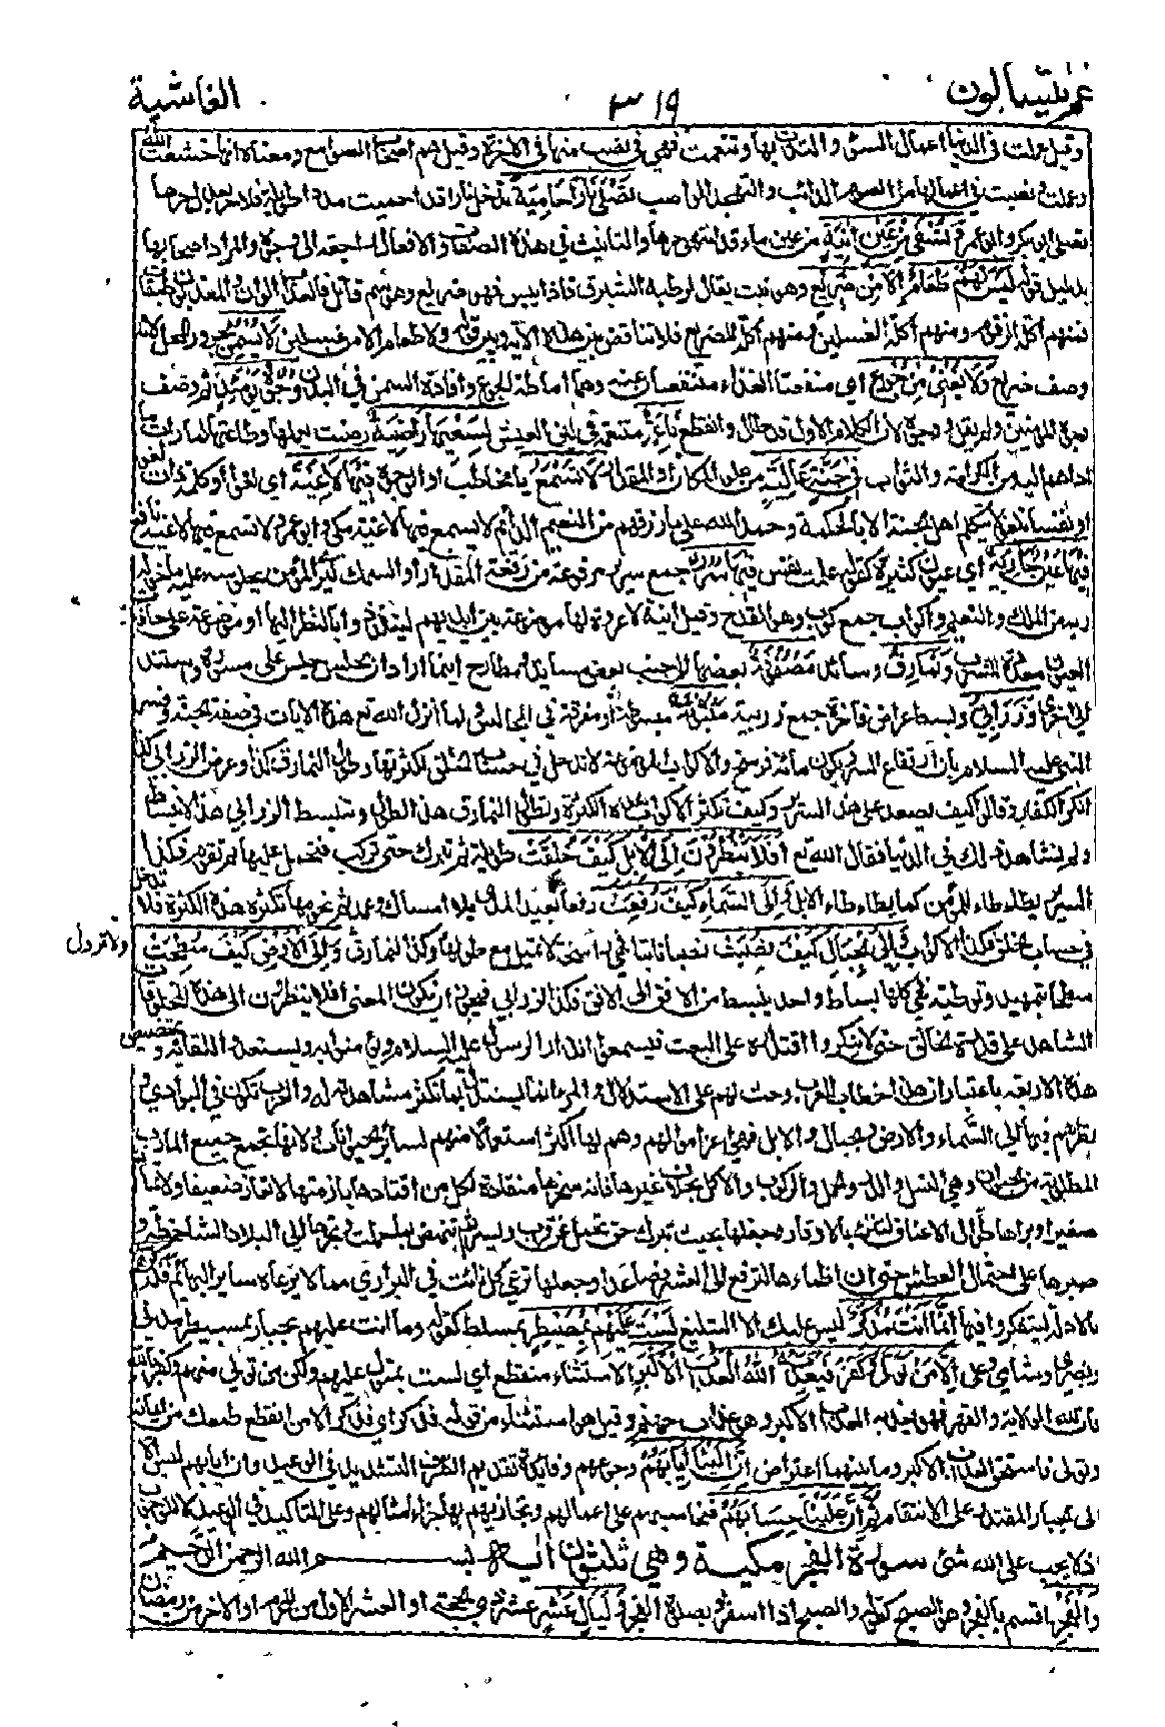 عم يتساءلون ٣١٩ الغاشية
وقيل عملت في الدنيا اعمال السوء والتذت بها وتنعمت فهي في نصب منها في الاخرة وقيل هم اصحاب الصوامع ومعناه انها خشعت لله
وعملت ونصبت في اعمالها من الصوم الدائب والتهجد الواصب تَصْلَى نَارًا حَامِيَةً تدخل نارا قد احميت مددا طويلة فلا حر يعدل حرها
تصلى ابو بكر وابو عمرو تُسْقَى مِنْ عَيْنٍ آنِيَةٍ من عين ماء قد انتهى حرها والتانيث في هذه الصفات والافعال راجعة الى الوجوه والمراد اصحابها
بدليل قوله لَيْسَ لَهُمْ طَعَامٌ إِلَّا مِنْ ضَرِيعٍ وهو نبت يقال لرطبه الشبرق فاذا يبس فهو ضريع وهو سم قاتل والعذاب الوان والمعذبون طبقات
فمنهم اكلة الزقوم ومنهم اكلة الغسلين ومنهم اكلة الضريع فلا تناقض بين هذه الاية وبين قوله ولا طعام الا من غسلين لَا يُسْمِنُ مجرور المحل لانه
وصف ضريع وَلَا يُغْنِي مِنْ جُوعٍ اي منفعتا الغذاء منتفيتان عنه وهما اماطة الجوع وافادة السمن في البدن وُجُوهٌ يَوْمَئِذٍ ثم وصف
وجوه المؤمنين ولم يقل ووجوه لان الكلام الاول قد طال وانقطع نَاعِمَةٌ متنعمة في لين العيش لِسَعْيِهَا رَاضِيَةٌ رضيت بعملها وطاعتها لما رات ما
اداهم اليه من الكرامة والثواب فِي جَنَّةٍ عَالِيَةٍ من علو المكان او المقدار لَا تَسْمَعُ يا مخاطب او الوجوه فِيهَا لَاغِيَةً اي لغوا او كلمة ذات لغو
او نفسا تلغو لا يتكلم اهل الجنة الا بالحكمة وحمد الله على ما رزقهم من النعيم الدائم لا يسمع فيها لاغية مكي وابو عمرو لا تسمع فيها لاغية نافع
فِيهَا عَيْنٌ جَارِيَةٌ اي عيون كثيرة كقوله علمت نفس فِيهَا سُرُرٌ جمع سرير مرفوعة من رفعة المقدار او السمك ليرى المؤمن بجلوسه عليه ما خوله
ربه من الملك والنعيم واكواب جمع كوب وهو القدح وقيل انية لا عروة لها موضوعة بين ايديهم ليتلذذوا بالنظر اليها او موضوعة على حافات
العيون معدة للشرب وَنَمَارِقُ وسائد مَصْفُوفَةٌ بعضها الى جنب بعض مساند ومطارح اينما اراد ان يجلس جلس على مسورة واستند
الى اخرى وَزَرَابِيُّ وبسط عراض فاخرة جمع زربية مَبْثُوثَةٌ مبسوطة او مفرقة في المجالس ولما انزل الله تع هذه الايات في صفة الجنة وفسر
النبي عليه السلام بان ارتفاع السرير يكون مائة فرسخ والاكواب الموضوعة لا تدخل في حساب الخلق لكثرتها وطول النمارق كذا وعرض الزرابي كذا
انكر الكفار وقالوا كيف يصعد على هذا السرير وكيف تكثر الاكواب هذه الكثرة وتطول النمارق هذا الطول وتنبسط الزرابي هذا الانبساط
ولم نشاهد ذلك في الدنيا فقال الله تع أَفَلَا يَنْظُرُونَ إِلَى الْإِبِلِ كَيْفَ خُلِقَتْ طويلة ثم تبرك حتى تركب فتحمل عليها ثم تقوم فكذا
السرير يطاطئ للمؤمن كما يطاطئ الابل وَإِلَى السَّمَاءِ كَيْفَ رُفِعَتْ رفعا بعيد المدى بلا امساك وعمد ثم نجومها تكثر هذه الكثرة فلا تدخل
في حساب الخلق فكذلك الاكواب وَإِلَى الْجِبَالِ كَيْفَ نُصِبَتْ نصبا ثابتا فهي راسخة لا تميل مع طولها وكذا النمارق وَإِلَى الْأَرْضِ كَيْفَ سُطِحَتْ
ولا تزول
سطحا بتمهيد وتوطية فهي كلها بساط واحد ينبسط من الافق الى الافق فكذا الزرابي ويجوز ان يكون المعنى افلا ينظرون الى هذه المخلوقات
الشاهدة على قدرة الخالق حتى لا ينكروا اقتداره على البعث فيسمعوا انذار الرسول عليه السلام ويؤمنوا به ويستعدوا للقائه وتخصيص
هذه الاربعة باعتبار ان هذا خطاب للعرب وحث لهم على الاستدلال والمرء انما يستدل بما تكثر مشاهدته له والعرب تكون في البوادي و
نظرهم فيها الى السماء والارض والجبال والابل فهي اعز اموالهم وهم لها اكثر استعمالا منهم لسائر الحيوانات ولانها تجمع جميع المآرب
المطلوبة من الحيوان وهي النسل والدر والحمل والركوب والاكل بخلاف غيرها ولانه سخرها منقادة لكل من اقتادها بازمتها لا تعاز ضعيفا ولا تمانع
صغيرا وبراها طوال الاعناق لتنوء بالاوقار وجعلها بحيث تبرك حتى تحمل عن قرب ويسر ثم تنهض بما حملت وتجرها الى البلاد الشاحطة و
صبرها على احتمال العطش حتى ان اظماءها لترتفع الى العشر فصاعدا وجعلها ترعى كل نابت في البراري مما لا يرعاه سائر البهائم فَذَكِّرْ
بالادلة ليتفكروا فيها إِنَّمَا أَنْتَ مُذَكِّرٌ ليس عليك الا التبليغ لَسْتَ عَلَيْهِمْ بِمُصَيْطِرٍ بمسلط كقوله وما انت عليهم بجبار بمسيطر مدني
وبصري وشامي وعلي إِلَّا مَنْ تَوَلَّى وَكَفَرَ فَيُعَذِّبُهُ اللَّهُ الْعَذَابَ الْأَكْبَرَ الاستثناء منقطع اي لست بمتول عليهم ولكن من تولى منهم وكفر بالله
فان لله الولاية والقهر فهو يعذبه العذاب الاكبر وهو عذاب جهنم وقيل هو استثناء من قوله فذكر اي فذكر الا من انقطع طمعك من ايمانه
وتولى فاستحق العذاب الاكبر وما بينهما اعتراض إِنَّ إِلَيْنَا إِيَابَهُمْ رجوعهم وفائدة تقديم الظرف التشديد في الوعيد وان ايابهم ليس الا
الى الجبار المقتدر على الانتقام ثُمَّ إِنَّ عَلَيْنَا حِسَابَهُمْ فنحاسبهم على اعمالهم ونجازيهم بها جزاء امثالهم وعلى لتاكيد الوعيد لا للوجوب
اذ لا يجب على الله شئ سورة الفجر مكية وهي ثلثون اية بسم الله الرحمن الرحيم
وَالْفَجْرِ اقسم بالفجر وهو الصبح كقوله والصبح اذا اسفر او بصلاة الفجر وَلَيَالٍ عَشْرٍ عشر ذي الحجة او العشر الاول من المحرم او الاخر من رمضان